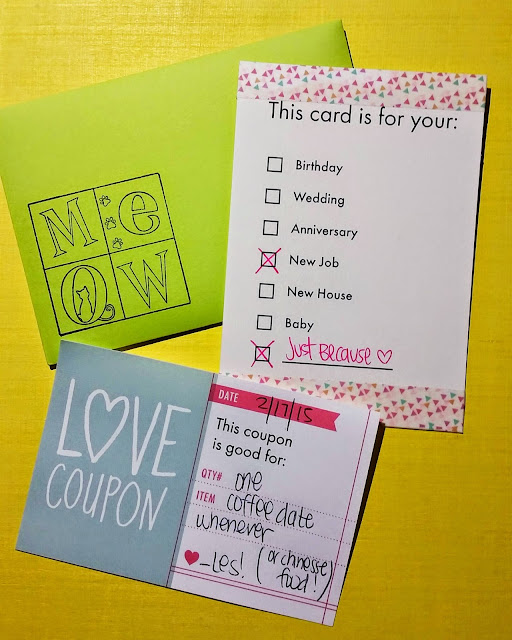 MeOW
This card is for your:
Birthday
Wedding
Anniversary
New Job
New House
Baby
Just Because
LOVE
COUPON
DATE 2/17/15
This coupon
is good for:
QTY# one
ITEM coffee date
whenever
—Les! (or chinesse
food!)